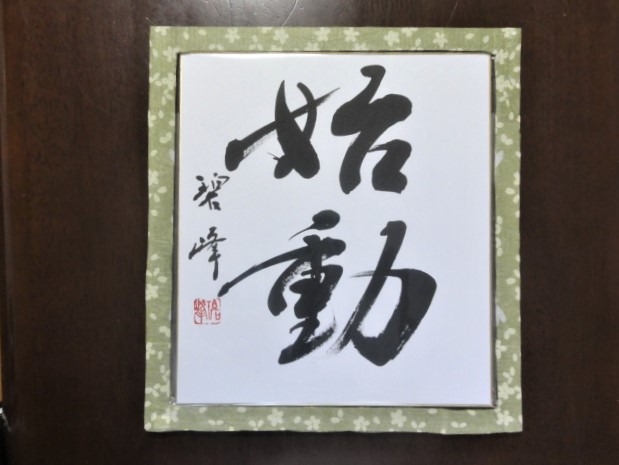 始動
碧峰